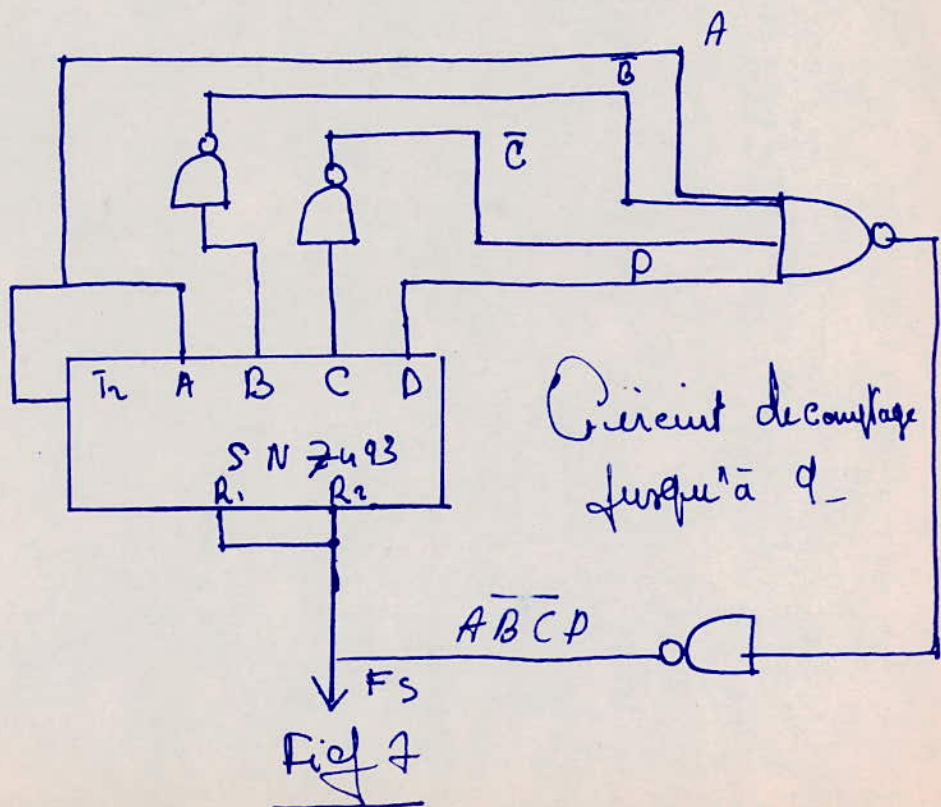 A
B̅
C̅
D
T2 A B C D
SN 7493
R1 R2
Circuit de comptage
jusqu'à 9_
A B̅ C̅ D
Fs
Fig 7